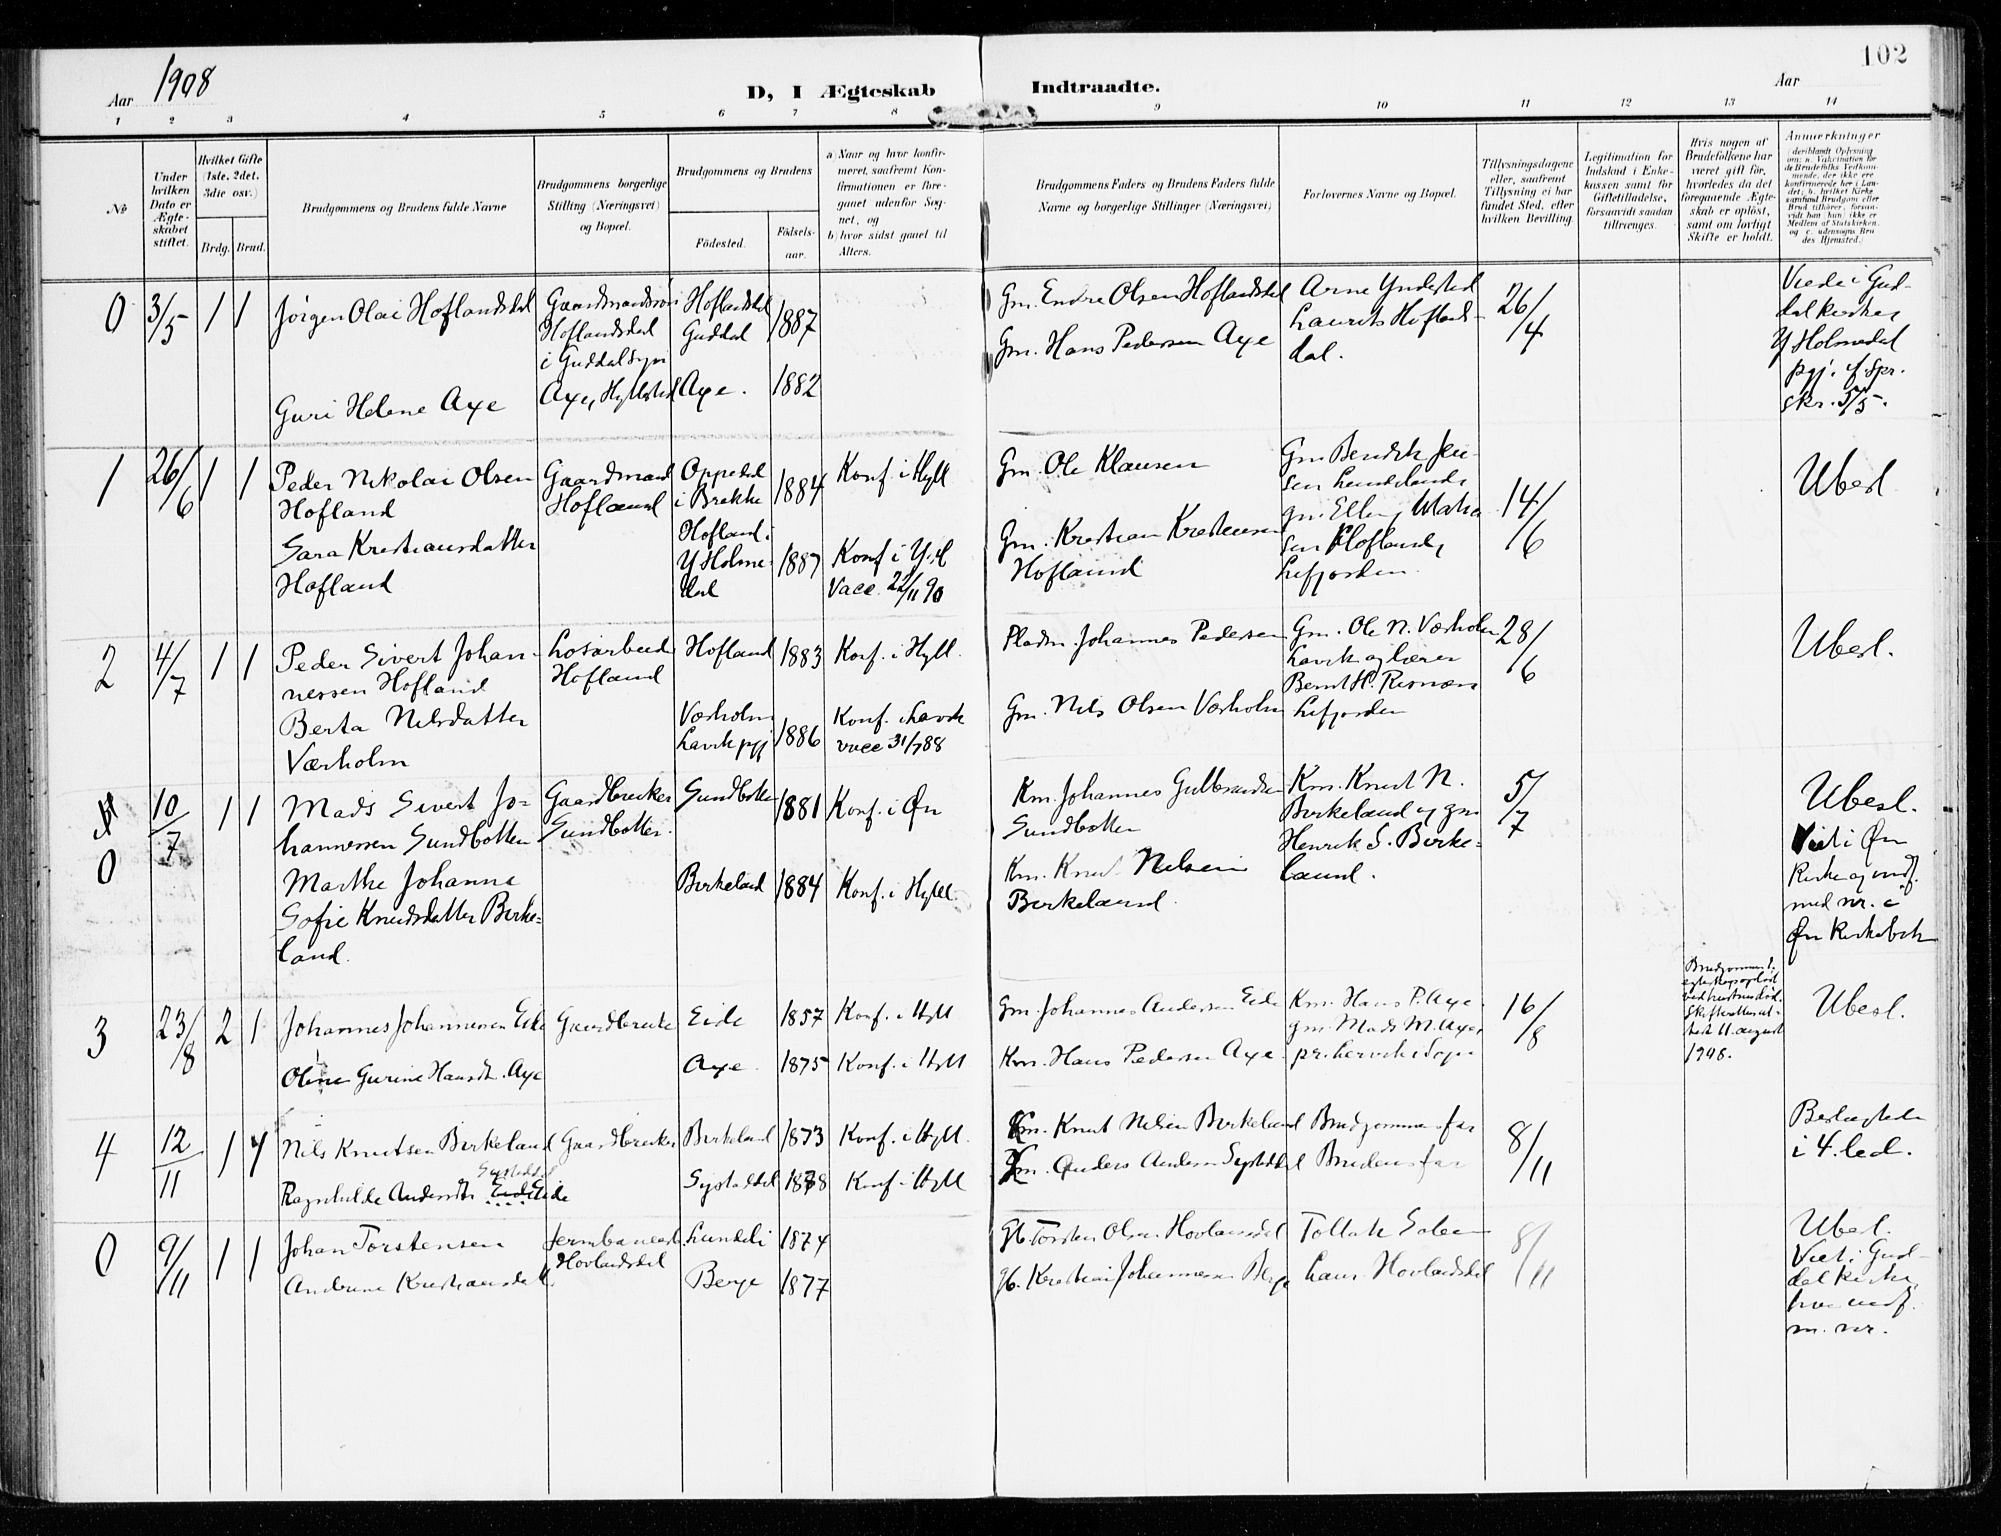 102
Aar 1908
D, I Ægteskab Indtraadte.
Aar
1 2 3 4 5 6 7 8 9 10 11 12 13 14
No
Under hvilken Dato er Ægteskabet stiftet.
Hvilket Gifte (1ste, 2det, 3die osv.)
Brdg. Brud.
Brudgommens og Brudens fulde Navne
Brudgommens borgerlige Stilling (Næringsvei) og Bopæl.
Brudgommens og Brudens
Fødested.
Fødselsaar.
a) Naar og hvor konfirmeret, saafremt Konfirmationen er foregaaet udenfor Sognet, og
b) hvor sidst gaaet til Alters.
Brudgommens Faders og Brudens Faders fulde Navne og borgerlige Stillinger (Næringsvei)
Forlovernes Navne og Bopæl.
Tillysningsdagene eller, saafremt Tillysning ei har fundet Sted, efter hvilken Bevilling.
Legitimation for Indskud i Enkekassen samt for Giftetilladelse, forsaavidt saadan tiltrænges.
Hvis nogen af Brudefolkene har været gift før, hvorledes da det foregaaende Ægteskab er opløst, samt om lovligt Skifte er holdt.
Anmerkninger
0 3/5 1 1 Jørgen Olai Hoflandsdal
Gaardmandssøn Hoflandsdal i Guddal sogn
Hoflandsdal Guddal 1887
Gm. Endre Olsen Hoflandsdal
Arne Yndestad
Laurits Hoflandsdal.
26/4
Viede i Guddal kirke, Y Holmedal pgj. f. spr. skr. 5/5.
Guri Helene Axe
Axe, Hyllestad
Axe. 1882
Gm. Hans Pedersen Axe
1 26/6 1 1 Peder Nikolai Olsen Hofland
Gaardmand Hofland
Oppedal i Brekke 1884
Konf. i Hyll
Gm. Ole Klausen
Gm Bendik
14/6
Ubesl.
Sara Kristiansdatter Hofland
Hofland i Y Holmedal 1887
Konf i Y.H
Vacc. 22/11 90
Gm. Kristian Kristensen Hofland
Hofland, Lifjorden.
2 4/7 1 1 Peder Sivert Johannessen Hofland
Løsarbeid Hofland
Hofland 1883
Konf. i Hyll.
Pladm. Johannes Pedersen
Gm. Ole N. Værholm Lavik og lærer Bernt H. Risnæs Lifjorden
28/6
Ubesl.
Berta Nilsdatter Værholm
Værholm Lavik pgj 1886
Konf. i Lavik vacc 31/7 88
Gm. Nils Olsen Værholm
0 10/7 1 1 Mads Sivert Johannessen Sundbotten
Gaardbruker Sundbotten.
Sundbotten 1881
Konf. i Øn
Km. Johannes Gulbrandsen Sundbotten
Km. Knut N. Birkeland og gm Henrik S. Birkeland.
5/7
Ubesl.
Viet i Øn Kirke og indf. med nr. i Øn Kirkebok
Marthe Johanna Sofie Knudsdatter Birkeland.
Birkeland 1884
Konf. i Hyll.
Km. Knut Nilsen Birkeland.
3 23/8 2 1 Johannes Johannessen Eide
Gaardbruker
Eide 1857
Konf. i Hyll
Gm. Johannes Andersen Eide
Km. Hans P. Axe
gm. Mads M. Axe,
16/8
Brudgommens egteskap opløst ved hustrus død. Skifteattest 11. august 1908.
Ubesl.
Oline Gurine Hansdt. Axe
Axe. 1875
Konf. i Hyll
Km. Hans Pedersen Axe.
4 12/11 1 1 Nils Knutsen Birkeland
Gaardbruker
Birkeland 1873
Konf. i Hyll.
Km. Knut Nilsen Birkeland
Brudgommens far
8/11
Beslægtede i 4. led.
Systaddal
Ragnhilde Andersdtr. Eide
Systaddal 1878
Konf. i Hyll
Gm. Anders Andersen Systaddal
Brudens far
0 9/11 1 1 Johan Torstensen
Jernbanearb. Hovlandsdal
Lundeli 1874
Gb. Torsten Olsen Hovlandsdal
Tollak
8/11
Ubesl.
Viet i Guddal kirke, hvor indf. m. nr.
Andrine Kristiansdatt.
Berge 1877
gb. Kristian Johannessen Berge
Laur. Hovlandsdal